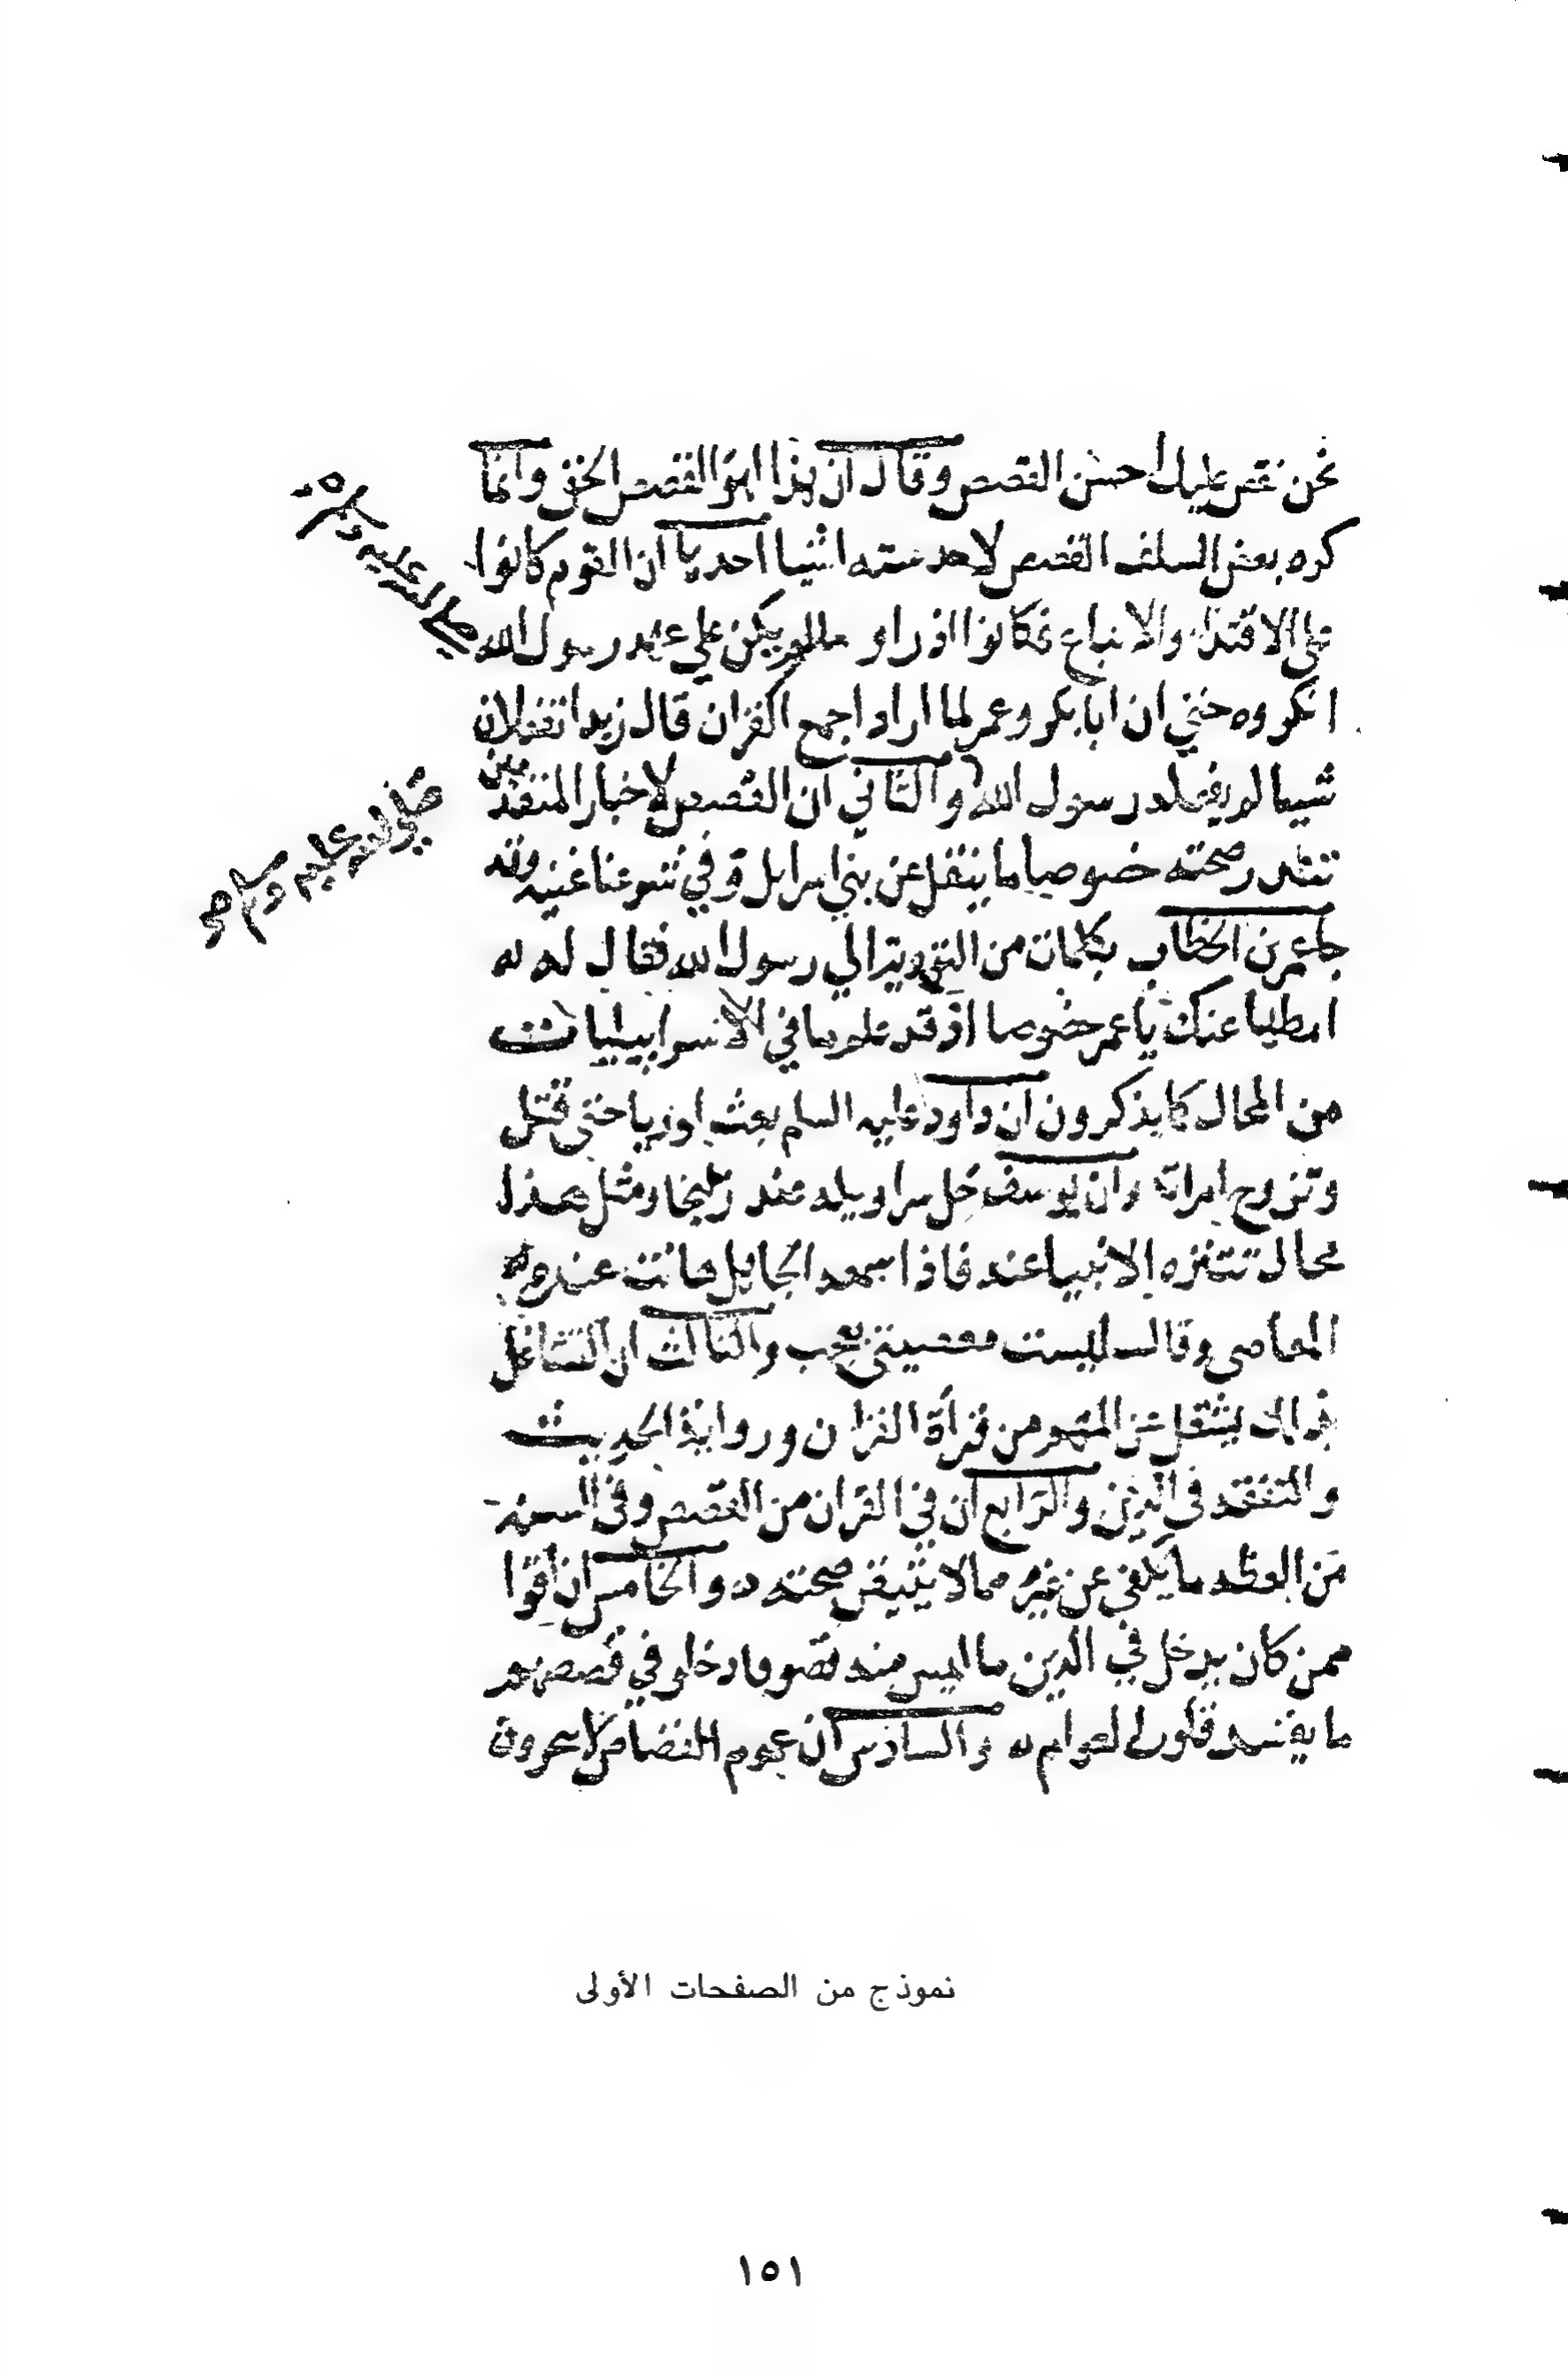 نحن نقص عليك احسن القصص وقال ان هذا لهو القصص الحق وانما
كره بعض السلف القصص لاحد ستة اشيا احدها ان القوم كانوا
على الاقتدا والاتباع فكانوا اذا راو مالم يكن علي عهد رسول الله
صلى الله عليه وسلم
انكروه حتي ان ابا بكر وعمر لما ارادا جمع القران قال زيد اتفعلان
شيا لم يفعله رسول الله والثاني ان القصص لاخبار المتقدمين
صلى الله عليه وسلم صح
تندر صحته خصوصا ما ينقل عن بني اسرايل وفي شرعنا غنية وقد
جا عمر بن الخطاب بكلمات من التورية الي رسول الله فقال له
امطها عنك يا عمر خصوصا اذ قد علم ما في الاسرايليات
من المحال كما يذكرون ان داود عليه السلم بعث اوريا حتي قتل
وتزوج امراته وان يوسف حل سراويله عند زليخا ومثل هذا
محال تتنزه الانبيا عنه فاذا سمعه الجاهل هانت عنده
المعاصي وقال ليست معصيتي بعجب والثالث ان التشاغل
بذلك يشغل عن المهم من قرأة القران ورواية الحديث
والتفقه في الدين والرابع ان في القران من القصص وفي السنة
من العظه ما يكفي عن غيره مما لا يتيقن صحته والخامس ان اقوا
ممن كان يدخل في الدين ما ليس منه قصوا فادخلو في قصصهم
ما يفسد قلوب العوام والسادس ان عموم القصاص لا يتحرون
نموذج من الصفحات الأولى
١٥١